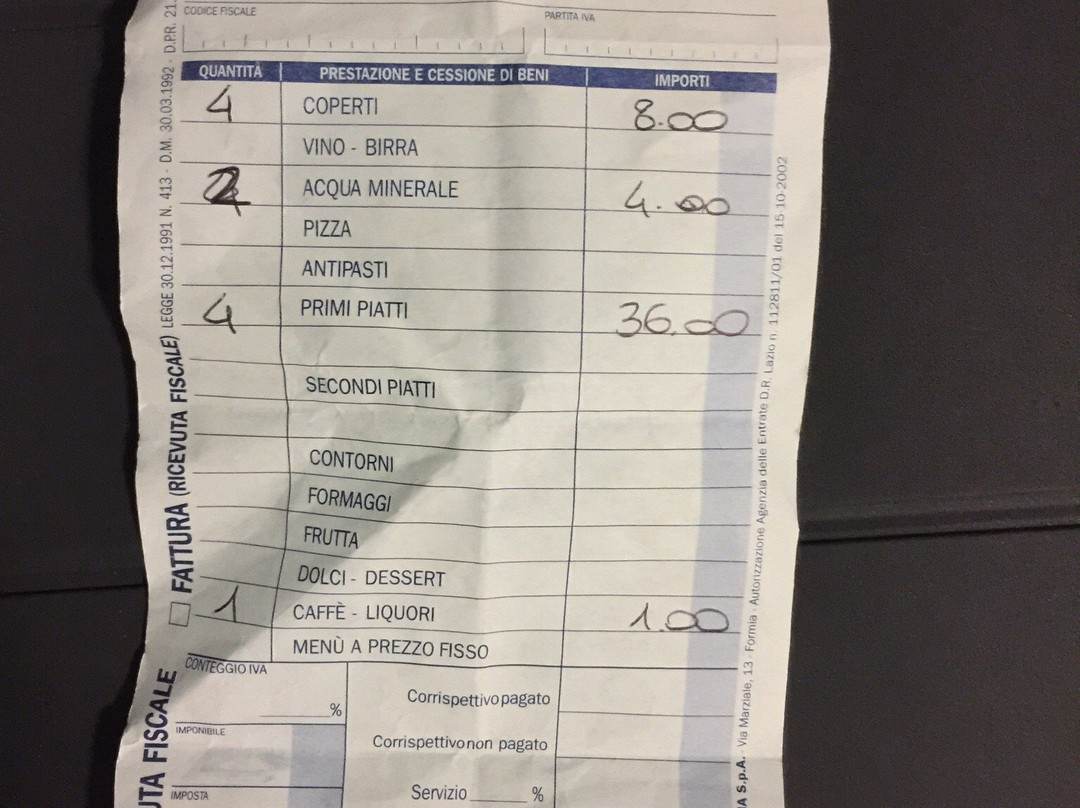 CODICE FISCALE PARTITA IVA
QUANTITÀ PRESTAZIONE E CESSIONE DI BENI IMPORTI
4 COPERTI 8.00
VINO - BIRRA
2 ACQUA MINERALE 4.00
PIZZA
ANTIPASTI
4 PRIMI PIATTI 36.00
SECONDI PIATTI
CONTORNI
FORMAGGI
FRUTTA
DOLCI - DESSERT
1 CAFFÈ - LIQUORI 1.00
MENÙ A PREZZO FISSO
CONTEGGIO IVA
Corrispettivo pagato
%
IMPONIBILE
Corrispettivo non pagato
IMPOSTA
Servizio %
FATTURA (RICEVUTA FISCALE) LEGGE 30.12.1991 N. 413 - D.M. 30.03.1992 - D.P.R. 21.
FISCALE
S.p.A. - Via Marziale, 13 - Formia - Autorizzazione Agenzia delle Entrate D.R. Lazio n. 112811/01 del 15-10-2002